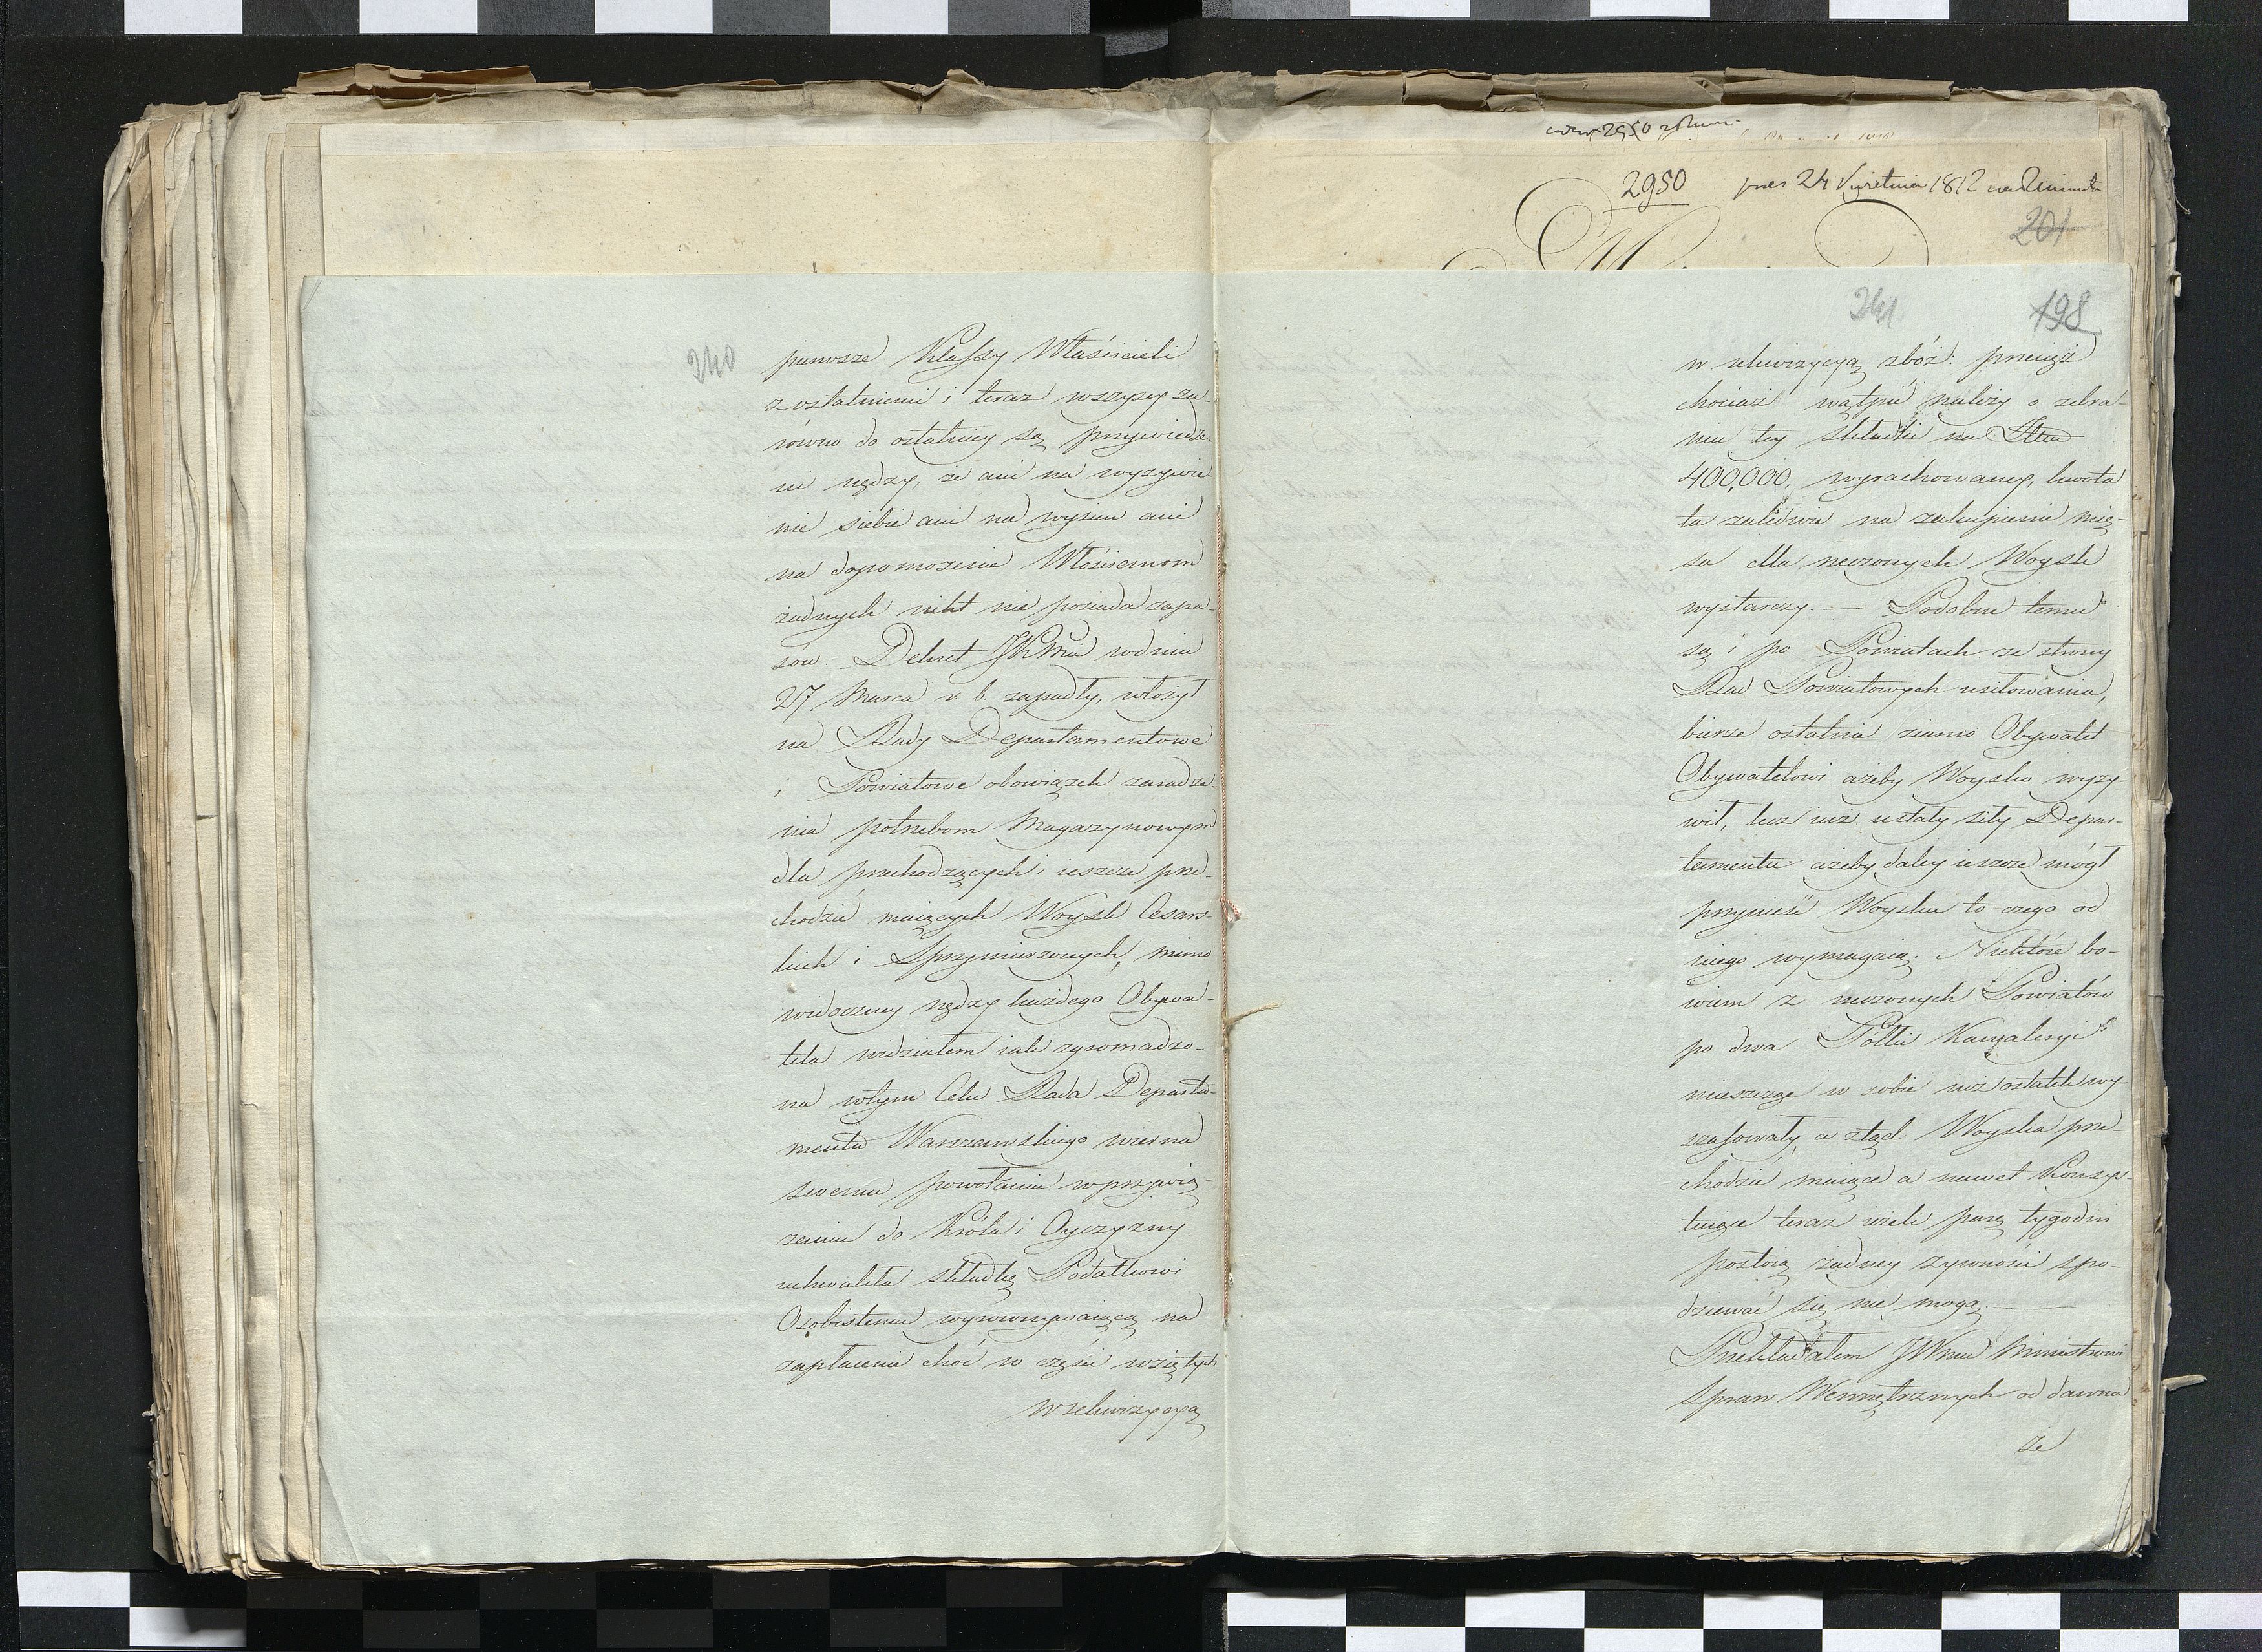 2950
24 Kwietnia 1812
201
240
pierwsze Klassy Właścicieli
z ostatniemi i teraz wszyscy za-
równo do ostatniey są przywiedze-
ni nędzy, że ani na wyżywie
nie siebie ani na wysiew ani
na dopomożenie Włościanom
żadnych nikt nie posiada zapa-
sów. Dekret JKMci w dniu
27 Marca r. b. zapadły, włożył
na Rady Departamentowe
i Powiatowe obowiązek zaradze-
nia potrzebom Magazynowym
dla przechodzących i ieszcze prze-
chodzić maiących Woysk Cesars-
kich i Sprzymierzonych, mimo
widoczney nędzy każdego Obywa-
tela widziałem iak zgromadzo-
na w tym Celu Rada Departa-
mentu Warszawskiego wierna
swemu powołaniu w przywią-
zaniu do Króla i Oyczyzny
uchwaliła składkę Podatkowi
Osobistemu wyrownywaiącą na
zapłacenie choć w części wziętych
w rekwizycyą
241
198
w rekwizycyą zbóż: przeciąż
chociaż wątpić należy o zebra-
niu tey składki na
400,000, wyrachowaney, kwota
ta zaledwie na zakupienie mię-
sa dla rzeczonych Woysk
wystarczy. — Podobne temu
są i po Powiatach ze strony
Rad Powiatowych usiłowania,
bierze ostatnie ziarno Obywatel
Obywatelowi ażeby Woysko wyży-
wił, lecz iuż ustały siły Depar-
tamentu ażeby daley ieszcze mógł
przynieść Woysku to czego od
niego wymagaią. Niektóre bo-
wiem z rzeczonych Powiatów
po dwa Półki Kawaleryi
mieszcząc w sobie iuż ostatek wy-
szafowały, a ztąd Woyska prze-
chodzić maiące a nawet Konsys-
tuiące teraz ieżeli parę tygodni
postoią żadney żywności spo-
dziewać się nie mogą. —
Przekładałem JWmu Ministrowi
Spraw Wewnętrznych od dawna
że